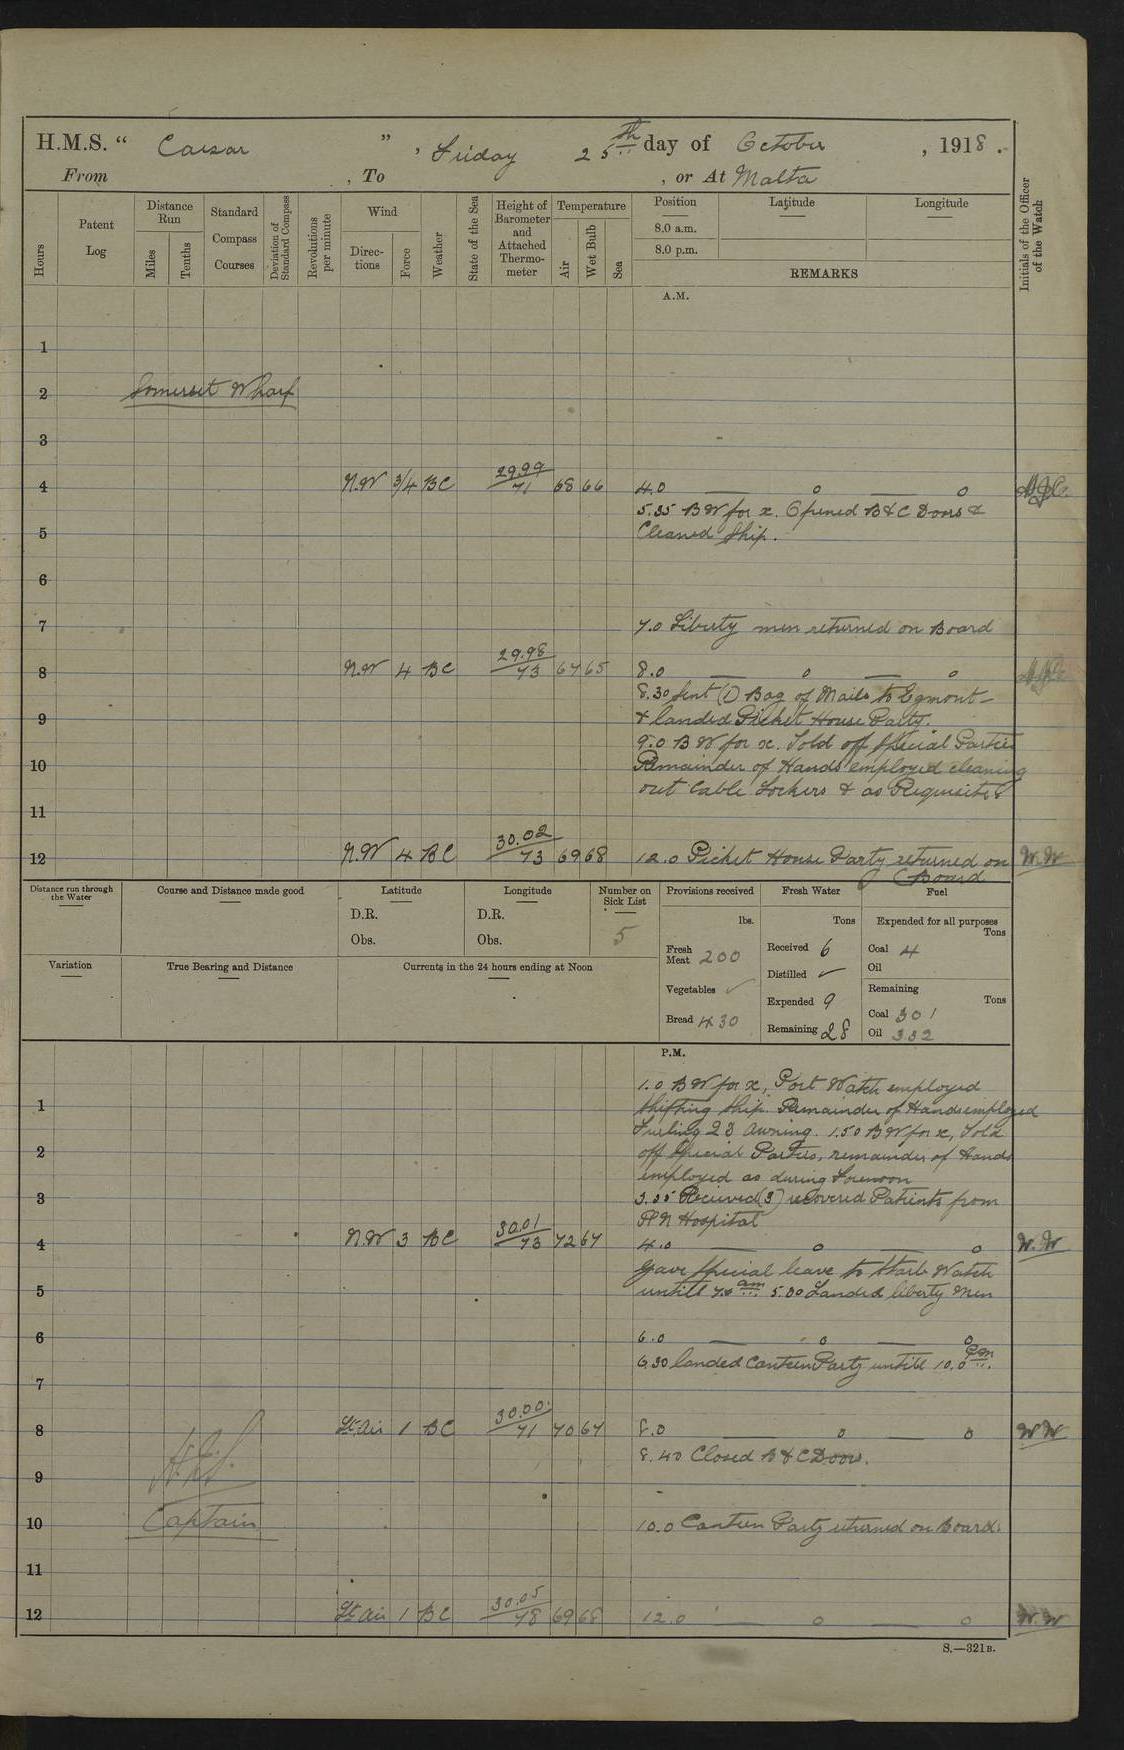 H.M.S. “ Caesar ” , Friday 25th day of October , 1918 .
From , To , or At Malta
Hours
Patent Log
Distance Run
Miles
Tenths
Standard Compass Courses
Deviation of Standard Compass
Revolutions per minute
Wind
Direc-tions
Force
Weather
State of the Sea
Height of Barometer and Attached Thermo-meter
Temperature
Air
Wet Bulb
Sea
Position Latitude Longitude
8.0 a.m.
8.0 p.m.
REMARKS
Initials of the Officer of the Watch
A.M.
1
2 Somerset Wharf
3
4 N.W 3/4 BC 29.99 71 68 66 4.0 — o — o
5.35 BW for x. Opened B & C Doors &
5 Cleaned Ship.
6
7 7.0 Liberty men returned on Board
8 N.W 4 BC 29.98 73 67 65 8.0 — o — o
8.30 Sent (1) Bag of Mails to Egmont -
9 & landed Picket House Party.
9.0 BW for x. Told off Special Parties
10 Remainder of Hands employed cleaning
out Cable Lockers & as Requisite.
11
12 N.W 4 BC 30.02 73 69 68 12.0 Picket House Party returned on W.W
Board
Distance run through the Water
Course and Distance made good
Latitude
D.R.
Obs.
Longitude
D.R.
Obs.
Number on Sick List
5
Variation
True Bearing and Distance
Currents in the 24 hours ending at Noon
Provisions received
lbs.
Fresh Meat 200
Vegetables ✓
Bread 430
Fresh Water
Tons
Received 6
Distilled ✓
Expended 9
Remaining 28
Fuel
Expended for all purposes
Tons
Coal 4
Oil
Remaining
Tons
Coal 301
Oil 332
P.M.
1.0 BW for x, Port Watch employed
1 Shifting Ship. Remainder of Hands employed
Furling 23 Awning. 1.50 BW for x, Told
2 off Special Parties, remainder of Hands
employed as during Forenoon
3 3.55 Received (3) recovered Patients from
RN Hospital
4 N.W 3 BC 30.01 73 72 67 4.0 — o — o W.W
Gave Special leave to Starb Watch
5 untill 7.0 am 5.00 Landed liberty Men
6 6.0 — o — o
6.30 landed Canteen Party untill 10.0 pm.
7
8 Lt. Air 1 BC 30.00 71 70 67 8.0 — o — o W W
8.40 Closed B & C Doors.
9
Captain
10 10.0 Canteen Party returned on Board.
11
12 Lt. Air 1 BC 30.05 78 69 68 12.0 — o — o W.W
S.—321B.